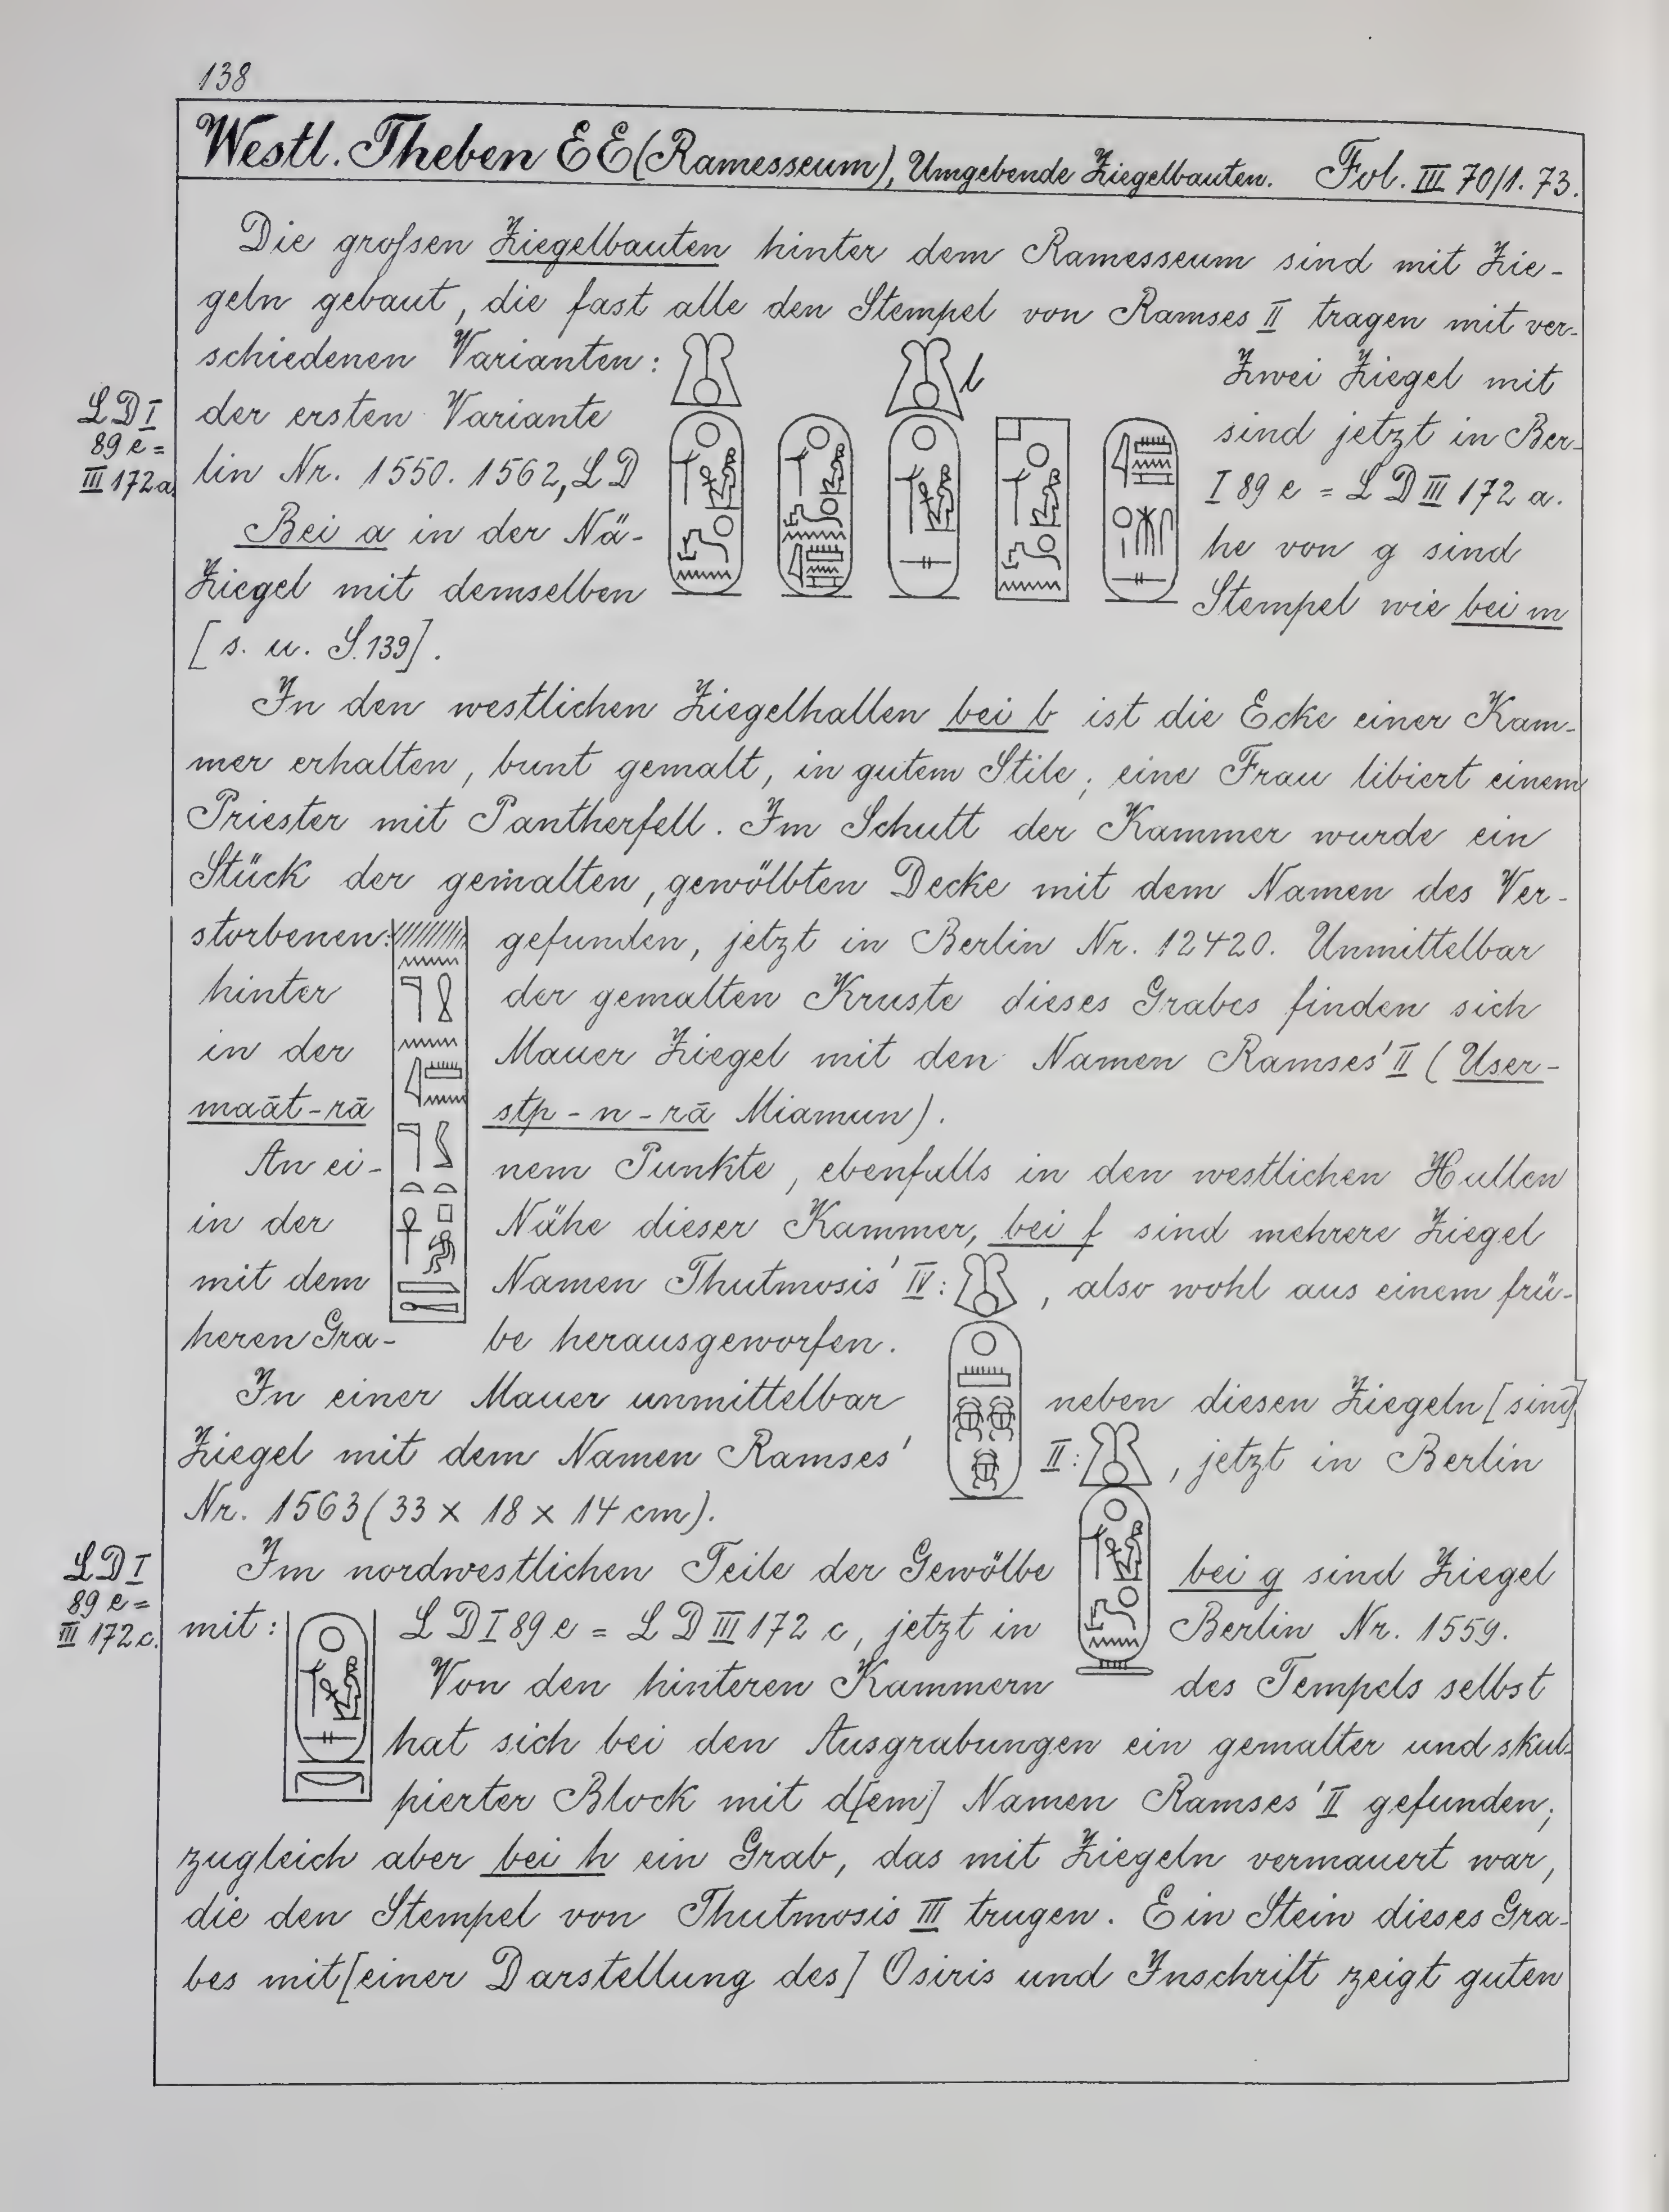 138
Westl. Theben EE (Ramesseum), Umgebende Ziegelbauten. Fol. III 70/1. 73.
Die großen Ziegelbauten hinter dem Ramesseum sind mit Zie-
geln gebaut, die fast alle den Stempel von Ramses II tragen mit ver-
schiedenen Varianten: Zwei Ziegel mit
LD I
89 e =
III 172 a
der ersten Variante sind jetzt in Ber-
lin Nr. 1550. 1562, LD I 89 e = LD III 172 a.
Bei a in der Nä- he von g sind
Ziegel mit demselben Stempel wie bei m
[s. u. S. 139].
In den westlichen Ziegelhallen bei b ist die Ecke einer Kam-
mer erhalten, bunt gemalt, in gutem Stile; eine Frau libiert einem
Priester mit Pantherfell. Im Schutt der Kammer wurde ein
Stück der gemalten, gewölbten Decke mit dem Namen des Ver-
storbenen: gefunden, jetzt in Berlin Nr. 12420. Unmittelbar
hinter der gemalten Kruste dieses Grabes finden sich
in der Mauer Ziegel mit den Namen Ramses' II (User-
maāt-rā stp-n-rā Miamun).
An ei- nem Punkte, ebenfalls in den westlichen Hallen
in der Nähe dieser Kammer, bei f sind mehrere Ziegel
mit dem Namen Thutmosis' IV: , also wohl aus einem frü-
heren Gra- be herausgeworfen.
In einer Mauer unmittelbar neben diesen Ziegeln [sind]
Ziegel mit dem Namen Ramses' II: , jetzt in Berlin
Nr. 1563 (33 x 18 x 14 cm).
LD I
89 e =
III 172 c.
Im nordwestlichen Teile der Gewölbe bei g sind Ziegel
mit: LD I 89 e = LD III 172 c, jetzt in Berlin Nr. 1559.
Von den hinteren Kammern des Tempels selbst
hat sich bei den Ausgrabungen ein gemalter und skul-
pierter Block mit d[em] Namen Ramses' II gefunden;
zugleich aber bei h ein Grab, das mit Ziegeln vermauert war,
die den Stempel von Thutmosis III trugen. Ein Stein dieses Gra-
bes mit [einer Darstellung des] Osiris und Inschrift zeigt guten